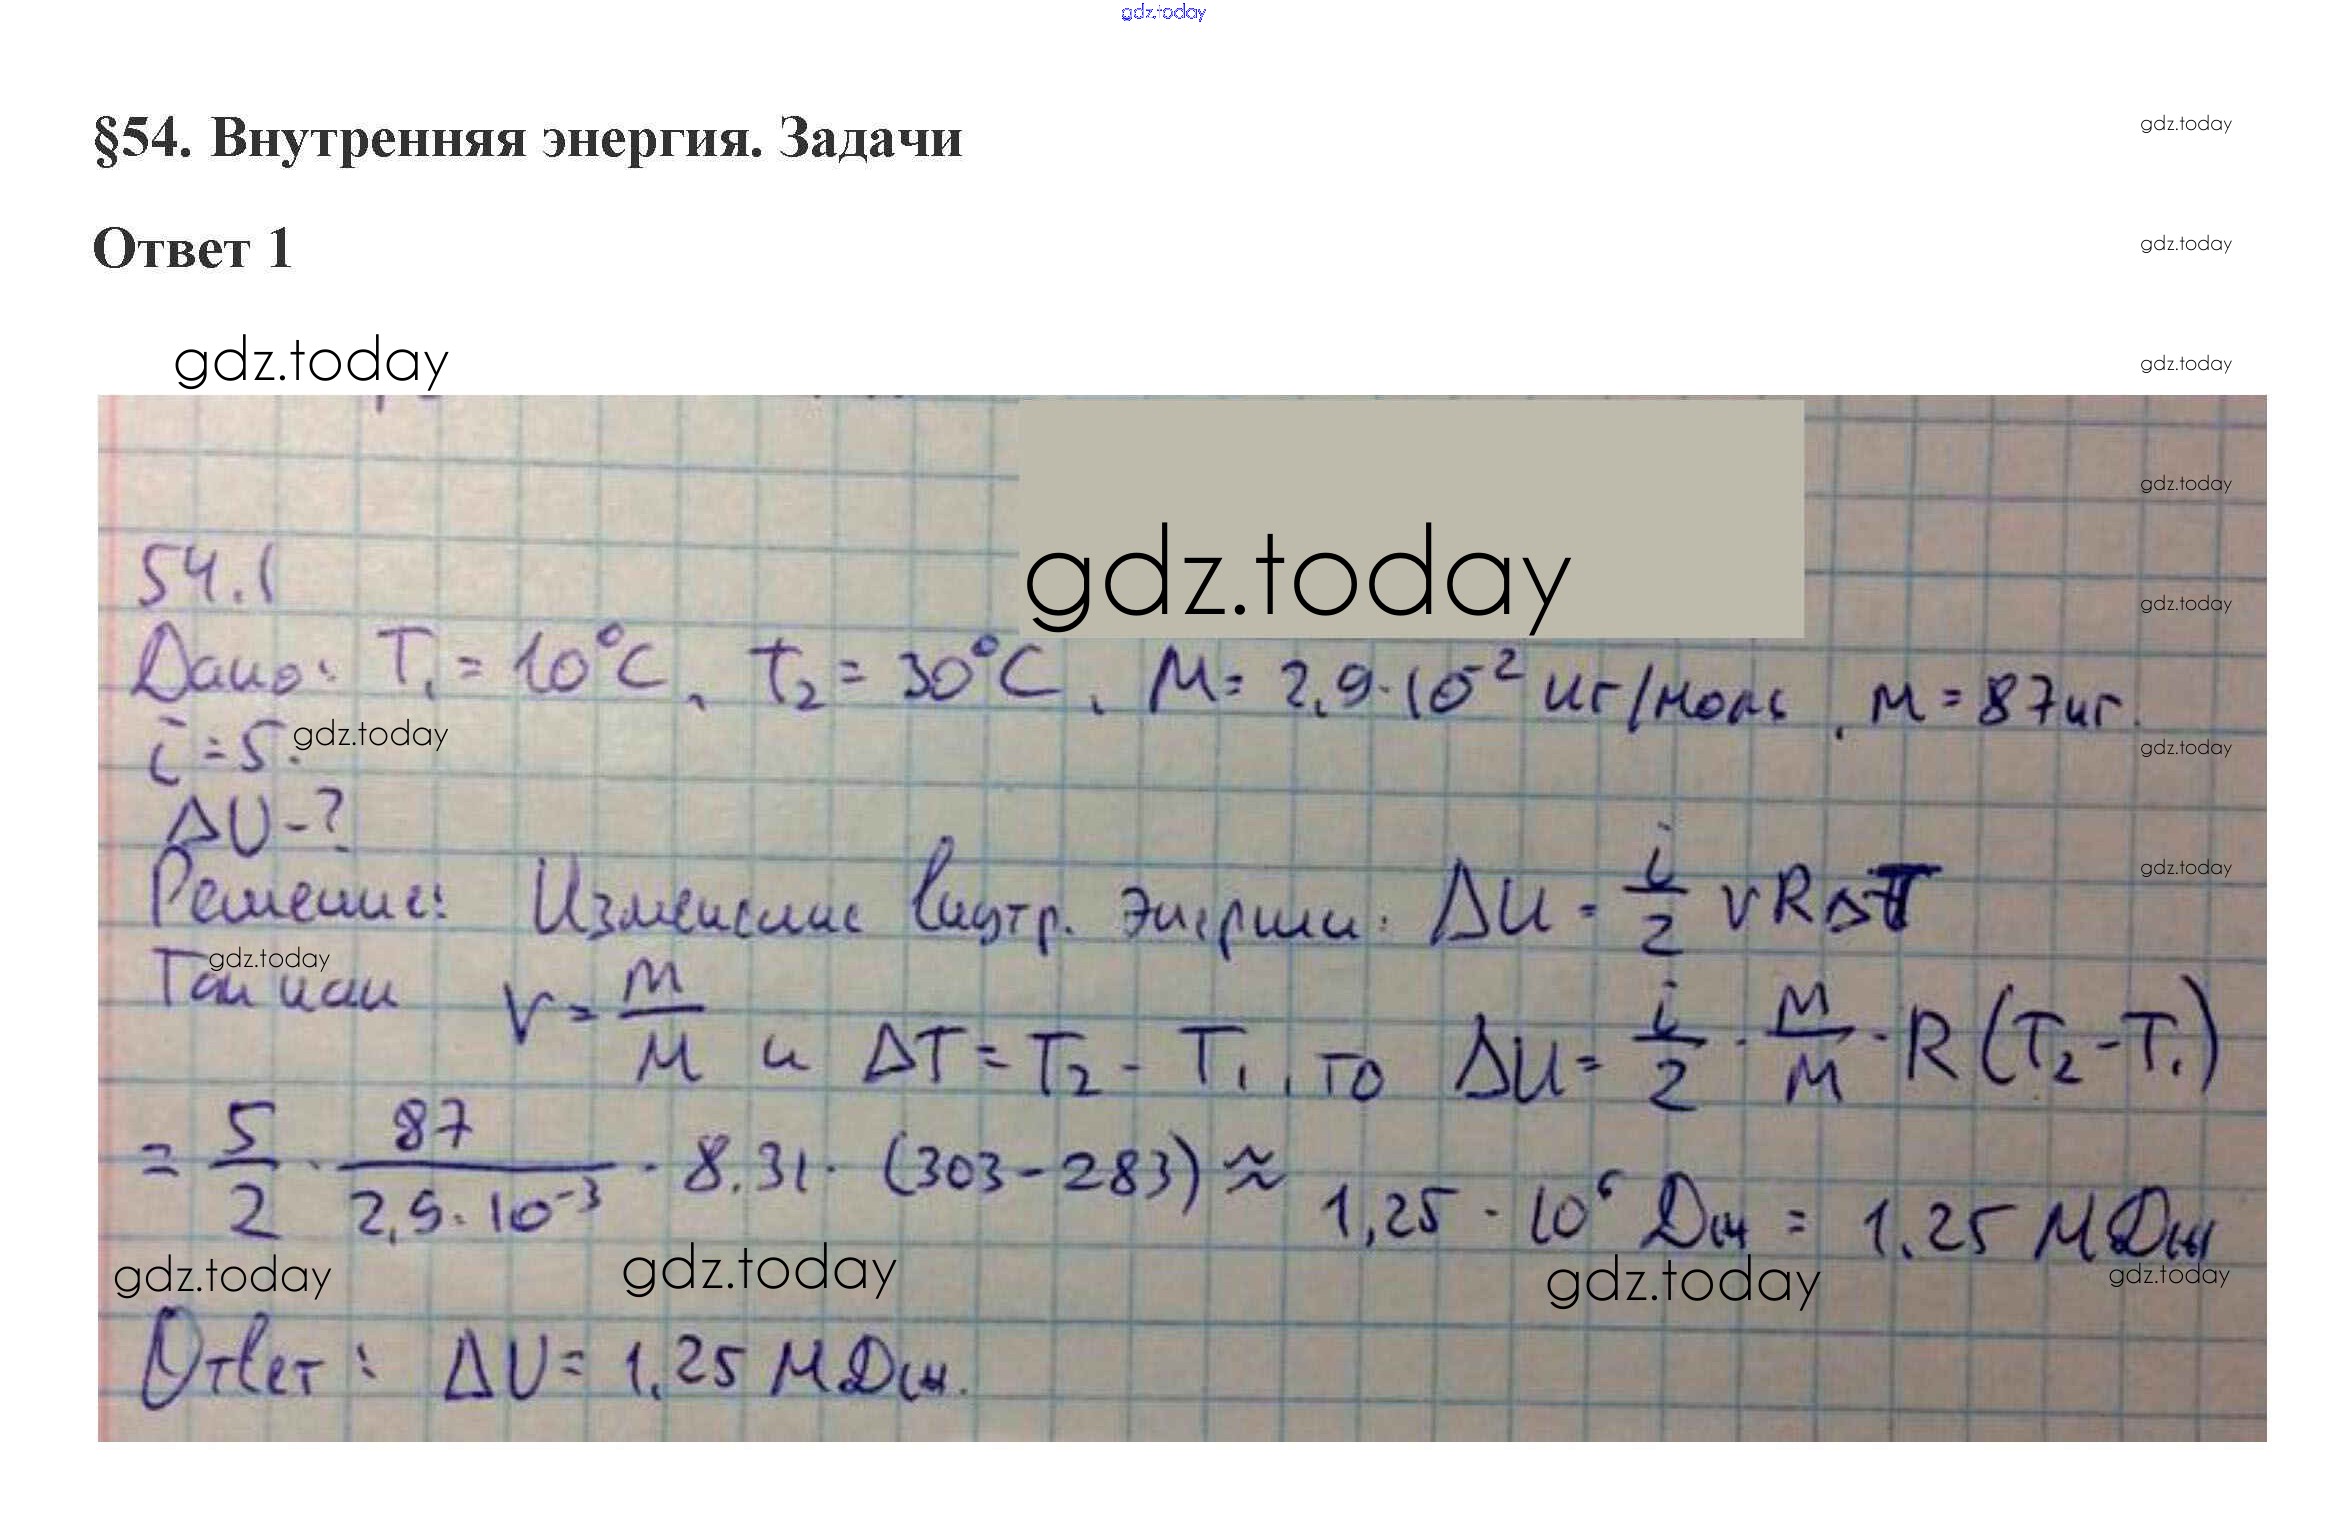 gdz.today
§54. Внутренняя энергия. Задачи
gdz.today
Ответ 1
gdz.today
gdz.today
gdz.today
gdz.today
gdz.today
54.1
gdz.today
Дано: T₁ = 10°C, t₂ = 30°C, M = 2,9·10⁻² кг/моль, m = 87 кг.
i = 5.
gdz.today
gdz.today
ΔU - ?
Решение: Изменение внутр. энергии: ΔU = i/2 νRΔT
gdz.today
gdz.today
Так как ν = m/M и ΔT = T₂ - T₁, то ΔU = i/2 · m/M · R(T₂ - T₁)
= 5/2 · 87/(2,9·10⁻³) · 8.31 · (303 - 283) ≈ 1,25 · 10⁶ Дж = 1.25 МДж
gdz.today
gdz.today
gdz.today
gdz.today
Ответ: ΔU = 1.25 МДж.